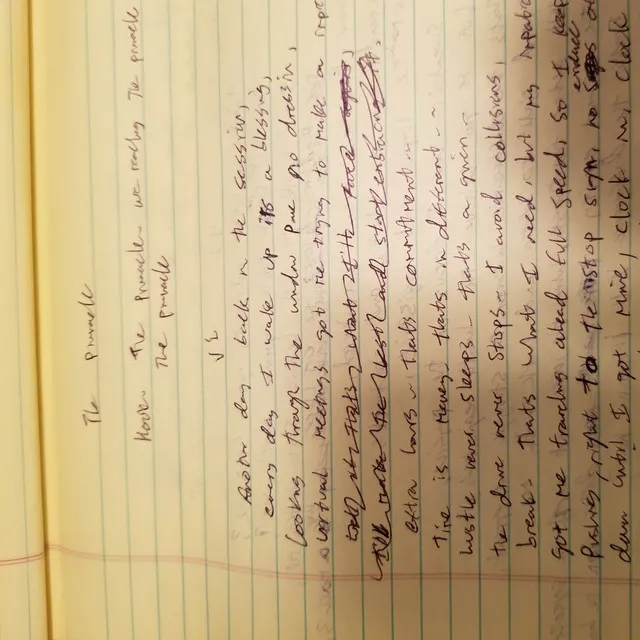 The pinnacle
Hook: The Pinnacle we reaching The pinnacle
The pinnacle
V1
Another day back in the session,
every day I wake up its a blessing,
Looking through the window pane no dressin,
virtual meetings got me trying to make a
extra hours - Thats commitment -
Time is money thats in different -
hustle never sleeps - thats a given -
the drive never stops - I avoid collisions,
break - Thats what I need, but my
got me traveling ahead full speed, so I keep
endure
pushing right to the stop sign, no
down until I got mine, clock out clock